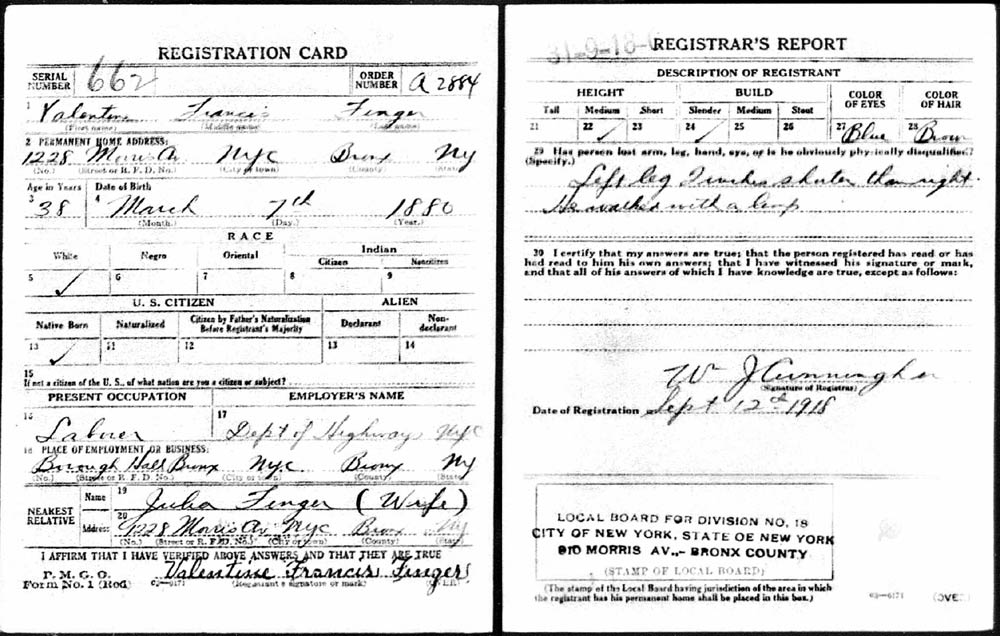 REGISTRATION CARD
SERIAL NUMBER 662 ORDER NUMBER A 2884
1 Valentine Francis Finger
(First name) (Middle name) (Last name)
2 PERMANENT HOME ADDRESS:
1228 Morris Av NYC Bronx NY
(No.) (Street or R. F. D. No.) (City or town) (County) (State)
Age in Years Date of Birth
3 38 4 March 7th 1880
(Month.) (Day.) (Year.)
RACE
White Negro Oriental Indian
Citizen Noncitizen
5 ✓ 6 7 8 9
U. S. CITIZEN ALIEN
Native Born Naturalized Citizen by Father's Naturalization Before Registrant's Majority Declarant Non-declarant
10 ✓ 11 12 13 14
15
If not a citizen of the U. S., of what nation are you a citizen or subject?
PRESENT OCCUPATION EMPLOYER'S NAME
16 17
Laborer Dept of Highways NYC
18 PLACE OF EMPLOYMENT OR BUSINESS:
Borough Hall Bronx NYC Bronx NY
(No.) (Street or R. F. D. No.) (City or town) (County) (State)
NEAREST RELATIVE
Name 19 Julia Finger (Wife)
Address 20 1228 Morris Av NYC Bronx NY
(No.) (Street or R. F. D. No.) (City or town) (County) (State)
I AFFIRM THAT I HAVE VERIFIED ABOVE ANSWERS AND THAT THEY ARE TRUE
P. M. G. O.
Form No. 1 (Red) Valentine Francis Finger
(Registrant's signature or mark) (OVER)
31-9-18-
REGISTRAR'S REPORT
DESCRIPTION OF REGISTRANT
HEIGHT BUILD COLOR OF EYES COLOR OF HAIR
Tall Medium Short Slender Medium Stout
21 22 ✓ 23 24 ✓ 25 26 27 Blue 28 Brown
29 Has person lost arm, leg, hand, eye, or is he obviously physically disqualified?
(Specify.)
Left leg 2 inches shorter than right.
He walks with a limp
30 I certify that my answers are true; that the person registered has read or has
had read to him his own answers; that I have witnessed his signature or mark,
and that all of his answers of which I have knowledge are true, except as follows:
Wm J Cunningham
(Signature of Registrar)
Date of Registration Sept 12th 1918
LOCAL BOARD FOR DIVISION NO. 18
CITY OF NEW YORK, STATE OF NEW YORK
910 MORRIS AV.,- BRONX COUNTY
(STAMP OF LOCAL BOARD)
(The stamp of the Local Board having jurisdiction of the area in which
the registrant has his permanent home shall be placed in this box.)
03-6171 (OVER)